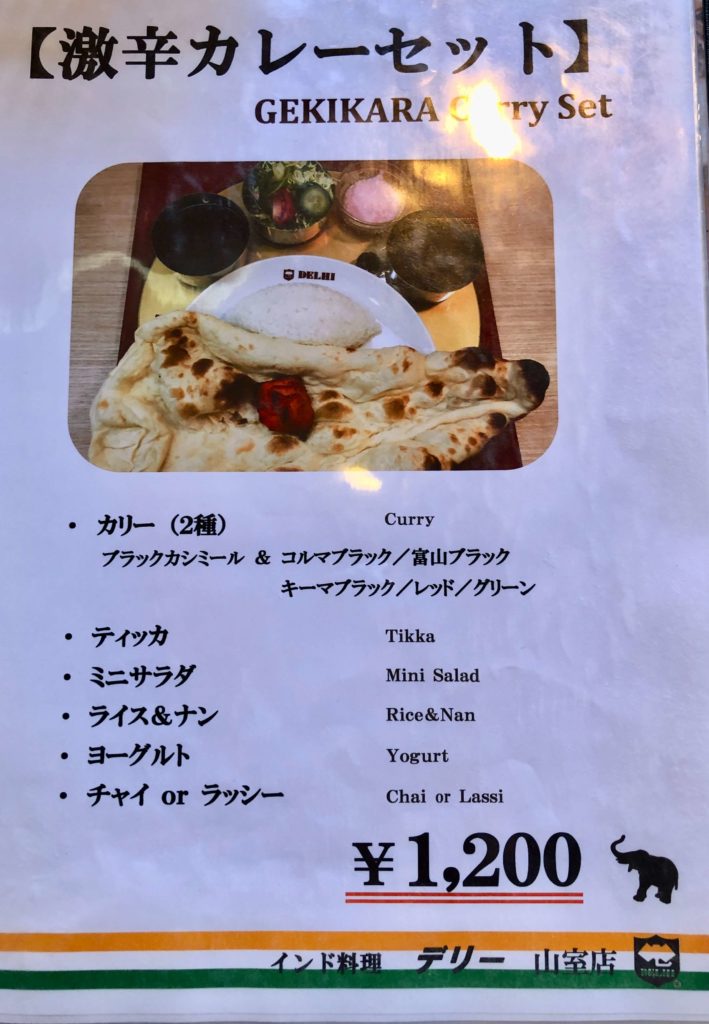 【激辛カレーセット】
GEKIKARA Curry Set
DELHI
・ カリー（2種） Curry
ブラックカシミール & コルマブラック／富山ブラック
キーマブラック／レッド／グリーン
・ ティッカ Tikka
・ ミニサラダ Mini Salad
・ ライス＆ナン Rice&Nan
・ ヨーグルト Yogurt
・ チャイ or ラッシー Chai or Lassi
￥1,200
インド料理 デリー 山室店